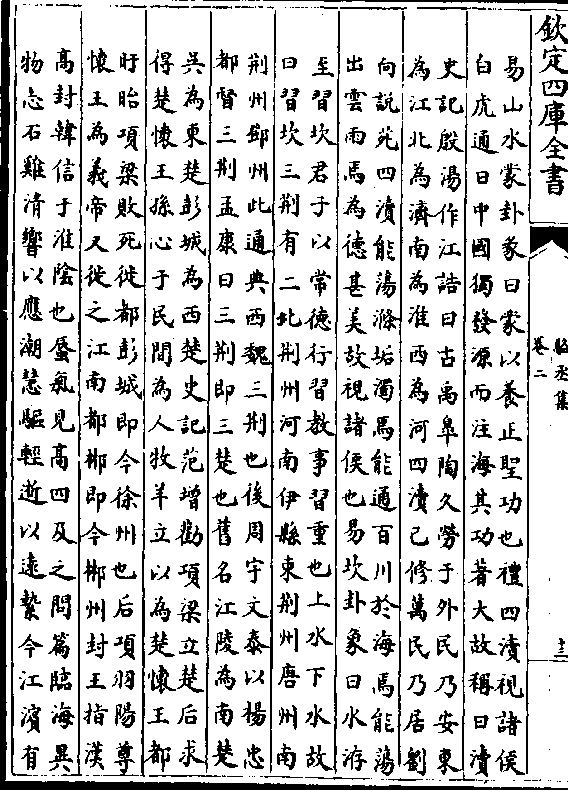 欽定四庫全書
易山水蒙卦彖曰蒙以養正聖功也禮四瀆視諸侯
白虎通曰中國獨發源而注海其功著大故稱曰瀆
史記殷湯作江誥曰古禹皐陶久勞于外民乃安東
為江北為濟南為淮西為河四瀆已修萬民乃居劉
向說苑四瀆能蕩滌垢濁焉能通百川於海焉能蕩
出雲雨焉為德甚美故視諸侯也易坎卦象曰水洊
至習坎君子以常德行習教事習重也上水下水故
曰習坎三荆有二北荆州河南伊縣東荆州唐州南
荆州鄧州此通典西魏三荆也後周宇文泰以楊忠
都督三荆孟康曰三荆即三楚也舊名江陵為南楚
吳為東楚彭城為西楚史記范增勸項梁立楚后求
得楚懷王孫心于民間為人牧羊立以為楚懷王都
盱眙項梁敗死徙都彭城即今徐州也后項羽陽尊
懷王為義帝又徙之江南都郴即今郴州封王指漢
高封韓信于淮陰也蜃氣見高四及之問篇臨海異
物志石雞清響以應潮慧軀輕逝以遠縶今江濱有
卷二
十三